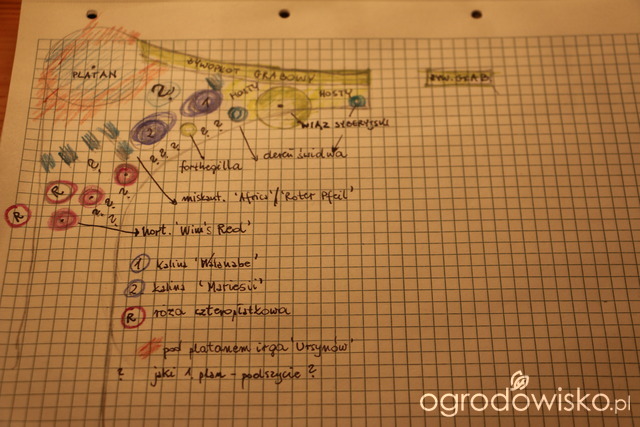 PLATAN
ŻYWOPŁOT GRABOWY
ŻYW. GRAB.
HOSTY
HOSTY
?
1
2
WIĄZ SYBERYJSKI
? ?
? ? ?
dereń świdwa
forthegilla
?
?
R
miskant. 'Africa'/'Roter Pfeil'
?
? ?
R
hort. 'Wim's Red'
1 kalina 'Watanabe'
2 kalina 'Mariesii'
R róża czteropłatkowa
pod platanem irga 'Ursynów'
? jaki 1. plan - podszycie ?
ogrodowisko.pl